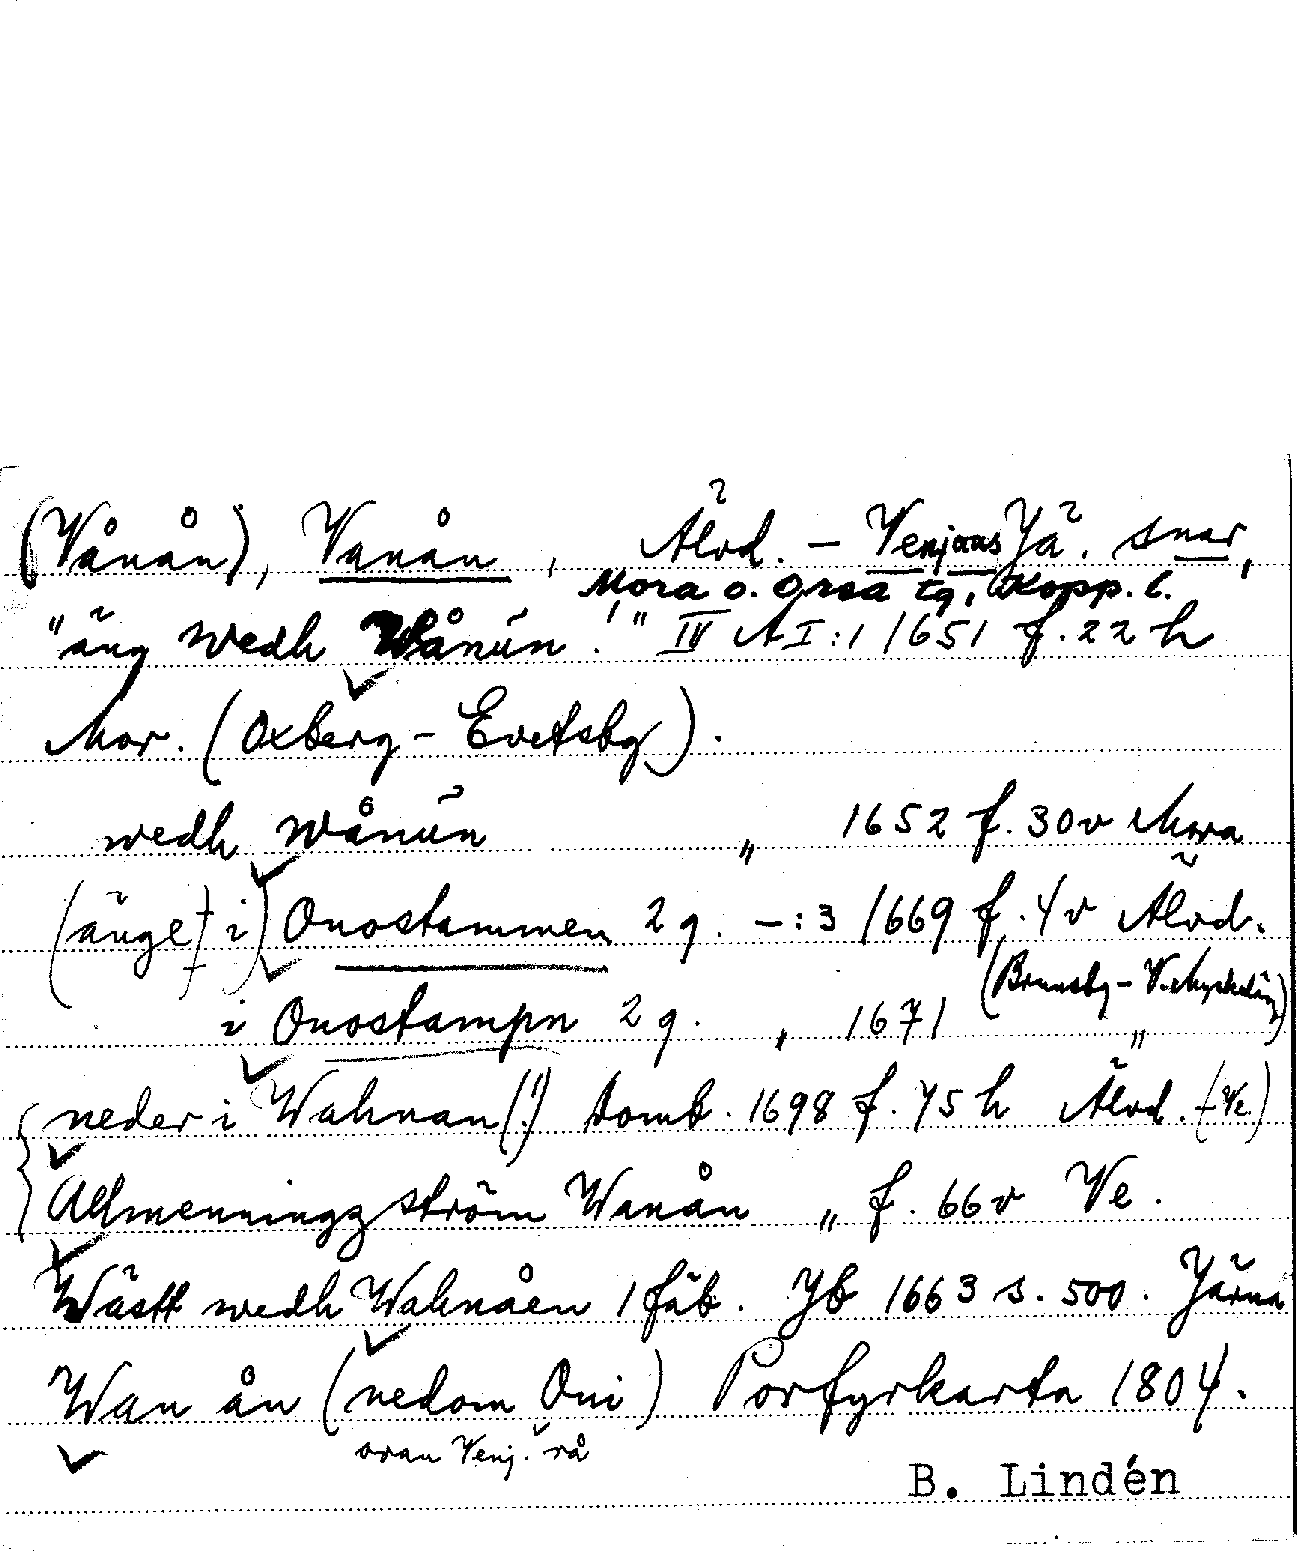 (Vånån), Vanån, Älvd. – Venjans Jä. snar,
Mora o. Orsa tg, Kopp. l.
"äng wedh Wånån." IV A I:1 1651 f. 22 h
Mor. (Oxberg – Evertsbg).
wedh Wånån „ 1652 f. 30 v Mora
(änge i) Onostammen 2 g. –:3 1669 f. 4 v Älvd.
i Onostampn 2 g. „ 1671 „
neder i Wahnan(!) Tomb. 1698 f. 75 h Älvd. (–Ve.)
Allmenningz ström Wanån „ f. 66 v Ve.
Wästt wedh Wahnåen 1 fäb. Jb 1663 s. 500. Järna
Wan ån (nedom Oni) Porfyrkarta 1804.
ovan Venj. rå
B. Lindén